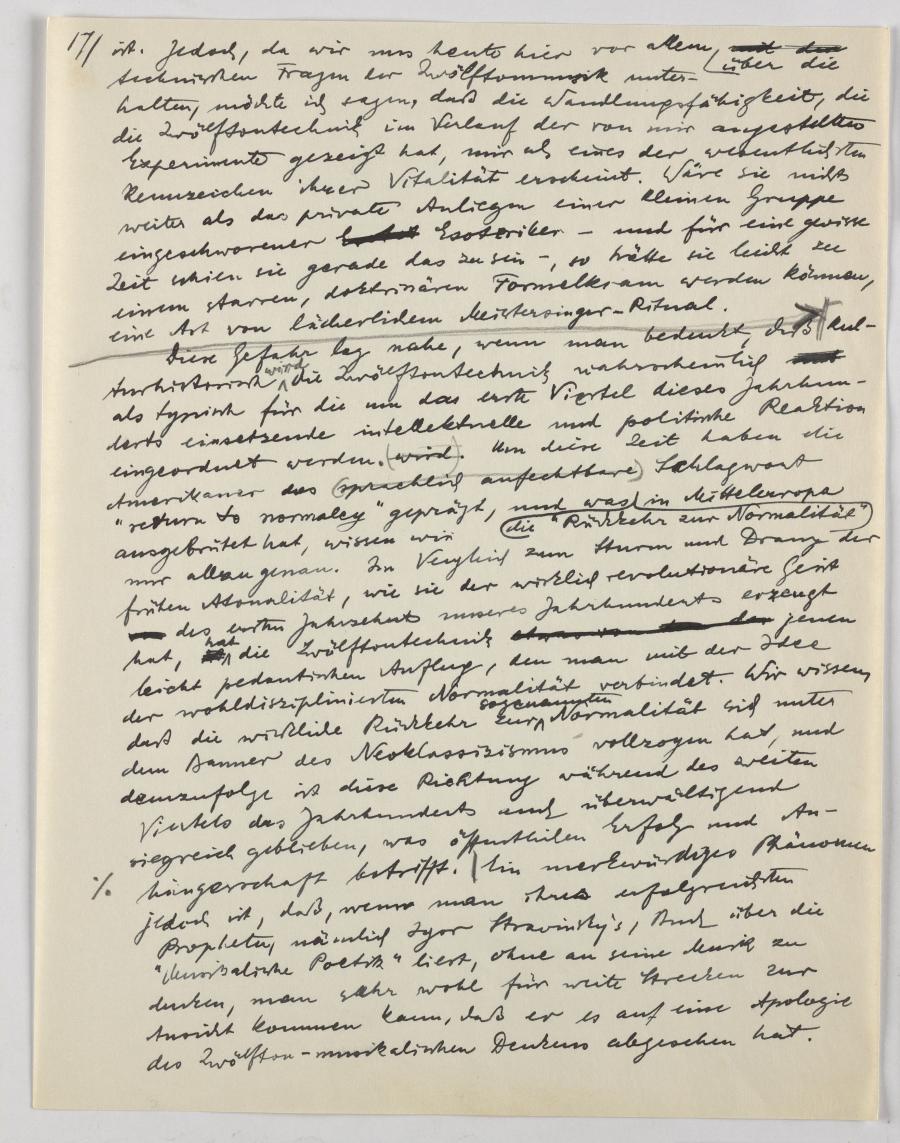 17/ ist. Jedoch, da wir uns heute hier vor allem, mit den
über die
technischen Fragen der Zwölftonmusik unter-
halten, möchte ich sagen, daß die Wandlungsfähigkeit, die
die Zwölftontechnik im Verlauf der von mir angestellten
Experimente gezeigt hat, mir als eines der wesentlichsten
Kennzeichen ihrer Vitalität erscheint. Wäre sie nichts
weiter als das private Anliegen einer kleinen Gruppe
eingeschworener Esoteriker – und für eine gewisse
Zeit schien sie gerade das zu sein –, so hätte sie leicht zu
einem starren, doktrinären Formelkram werden können,
eine Art von lächerlichem Meistersinger-Ritual.
Diese Gefahr lag nahe, wenn man bedenkt, daß kul-
turhistorisch wird die Zwölftontechnik wahrscheinlich
als typisch für die um das erste Viertel dieses Jahrhun-
derts einsetzende intellektuelle und politische Reaktion
eingeordnet werden. (wird). Um diese Zeit haben die
Amerikaner das (sprachlich anfechtbare) Schlagwort
"return to normalcy" geprägt, und was in Mitteleuropa
die "Rückkehr zur Normalität"
ausgebrütet hat, wissen wir
nur allzu genau. Im Vergleich zum Sturm und Drang der
frühen Atonalität, wie sie der wirklich revolutionäre Geist
des ersten Jahrzehnts unseres Jahrhunderts erzeugt
hat, hat die Zwölftontechnik jenen
leicht pedantischen Anflug, den man mit der Idee
der wohldisziplinierten Normalität verbindet. Wir wissen,
daß die wirkliche Rückkehr zur sogenannten Normalität sich unter
dem Banner des Neoklassizismus vollzogen hat, und
demzufolge ist diese Richtung während des zweiten
Viertels des Jahrhunderts auch überwältigend
siegreich geblieben, was öffentlichen Erfolg und An-
hängerschaft betrifft. Ein merkwürdiges Phänomen
jedoch ist, daß, wenn man ihres erfolgreichsten
Propheten, nämlich Igor Stravinsky's, Buch über die
"Musikalische Poetik" liest, ohne an seine Musik zu
denken, man sehr wohl für weite Strecken zur
Ansicht kommen kann, daß er es auf eine Apologie
des Zwölfton-musikalischen Denkens abgesehen hat.